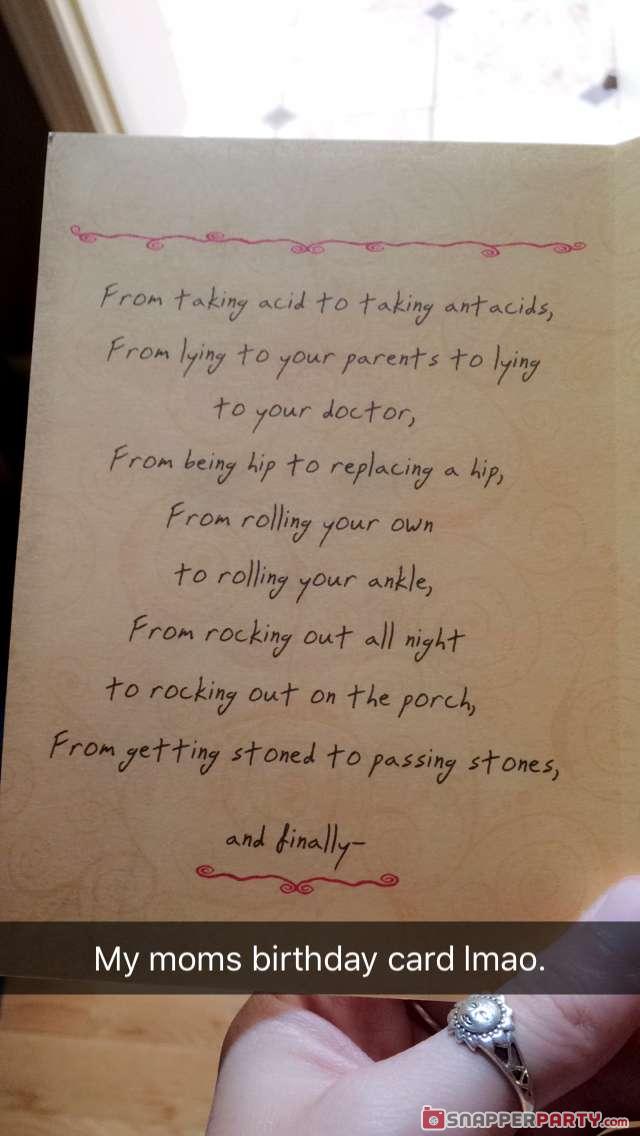 From taking acid to taking antacids,
From lying to your parents to lying
to your doctor,
From being hip to replacing a hip,
From rolling your own
to rolling your ankle,
From rocking out all night
to rocking out on the porch,
From getting stoned to passing stones,
and finally—
My moms birthday card lmao.
SNAPPERPARTY.com